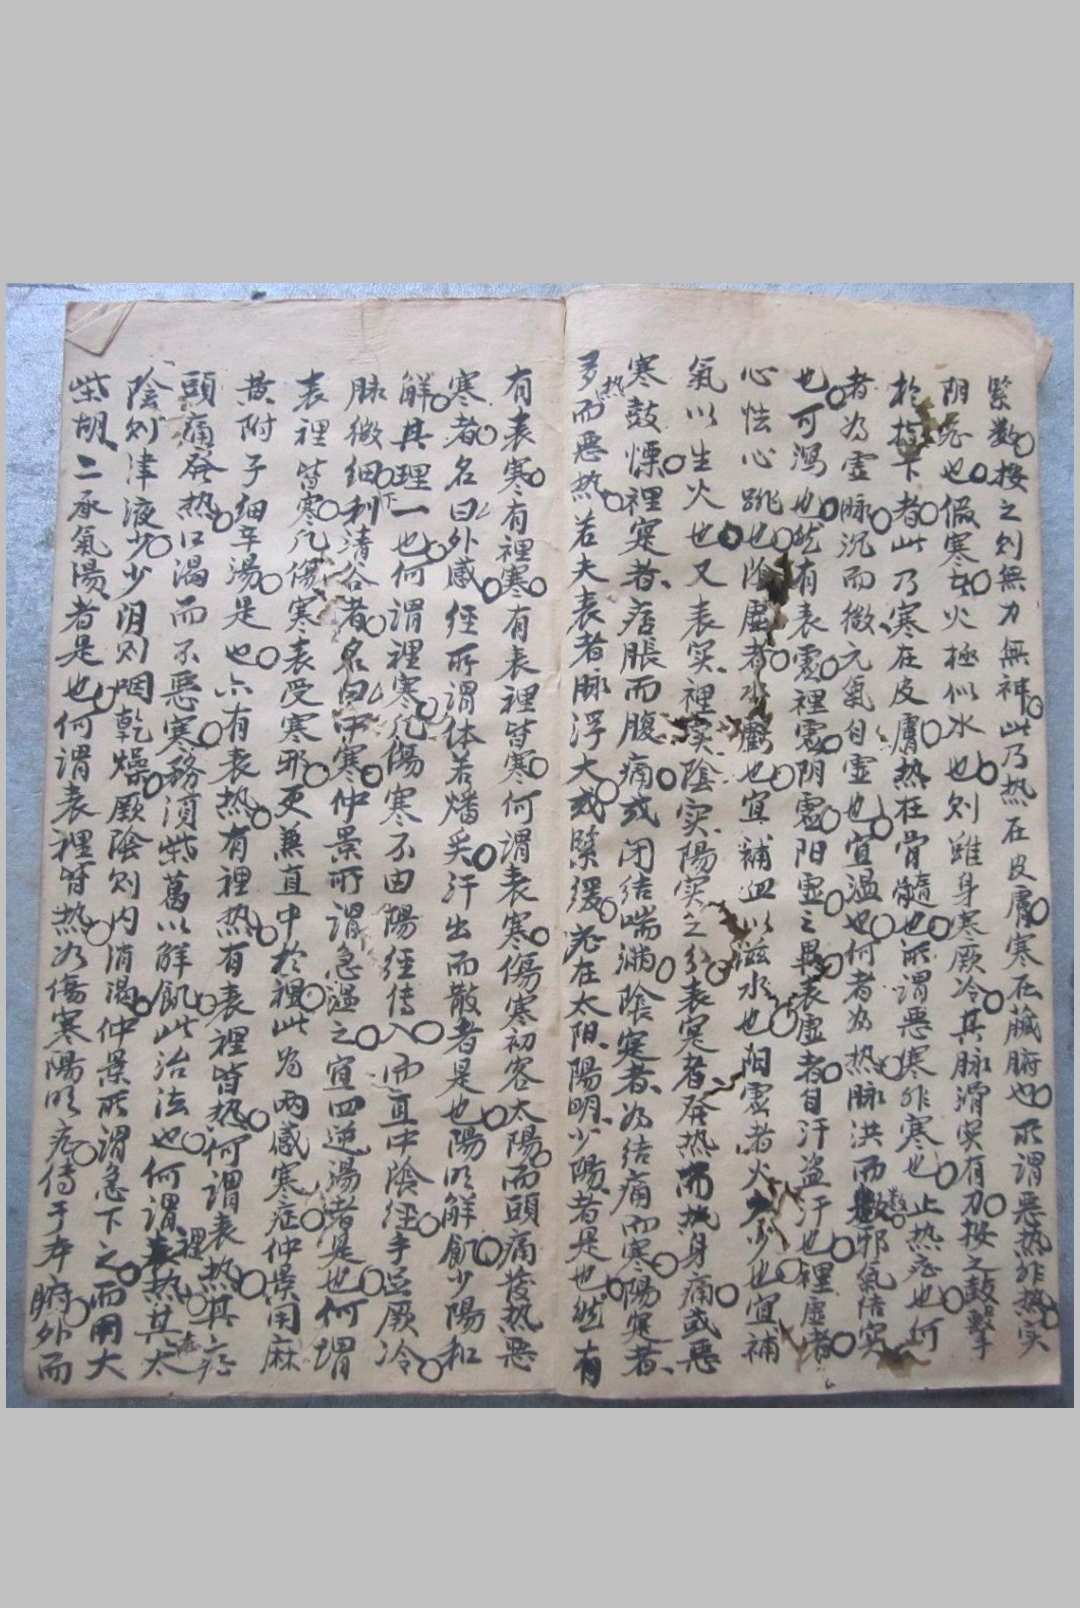 緊数按之則無力無神此乃热在皮膚寒在臟腑也所謂惡热非热实
阴症也假寒者火極似水也則雖身寒厥冷其脉滑实有力按之鼓擊
於指下者此乃寒在皮膚热在骨髓也所謂惡寒非寒也止热症也何
者為虛脉沉而微元氣自虛也宜温也何者為热脉洪而数邪氣结实
也可瀉也然有表虛裡虛阴虛阳虛之異表虛者自汗盗汗也裡虛者
心怯心跳也陰虛者水虧也宜補血以滋水也阳虛者火少也宜補
氣以生火也又表实裡实陰实陽实之分表寔者発热而热身痛或惡
寒鼓慄裡寔者痞脹而腹痛或闭结喘满陰寔者為结痛而寒陽寔者
多热而惡热若夫表者脉浮大或緊缓症在太阳陽明少陽者是也然有
有表寒有裡寒有表裡皆寒何謂表寒傷寒初客太陽而頭痛發热惡
寒者名曰外感経所謂体若燔炙汗出而散者是也陽明解飢少陽和
解其理一也何謂裡寒凡傷寒不由陽経傳入而直中陰経手足厥冷
脉微细下利清谷者名曰中寒仲景所謂急温之宜四逆湯者是也何謂
表裡皆寒凡傷寒表受寒邪更兼直中於裡此為两感寒症仲景用麻
黄附子细辛湯是也亦有表热有裡热有表裡皆热何謂表热其症
頭痛発热口渴而不惡寒務須柴葛以解飢此治法也何謂裡热其太
陰則津液少少阴則咽乾燥厥陰則内消渴仲景所謂急下之而用大
柴胡二承氣湯者是也何謂表裡皆热如傷寒陽明症傳于本腑外而